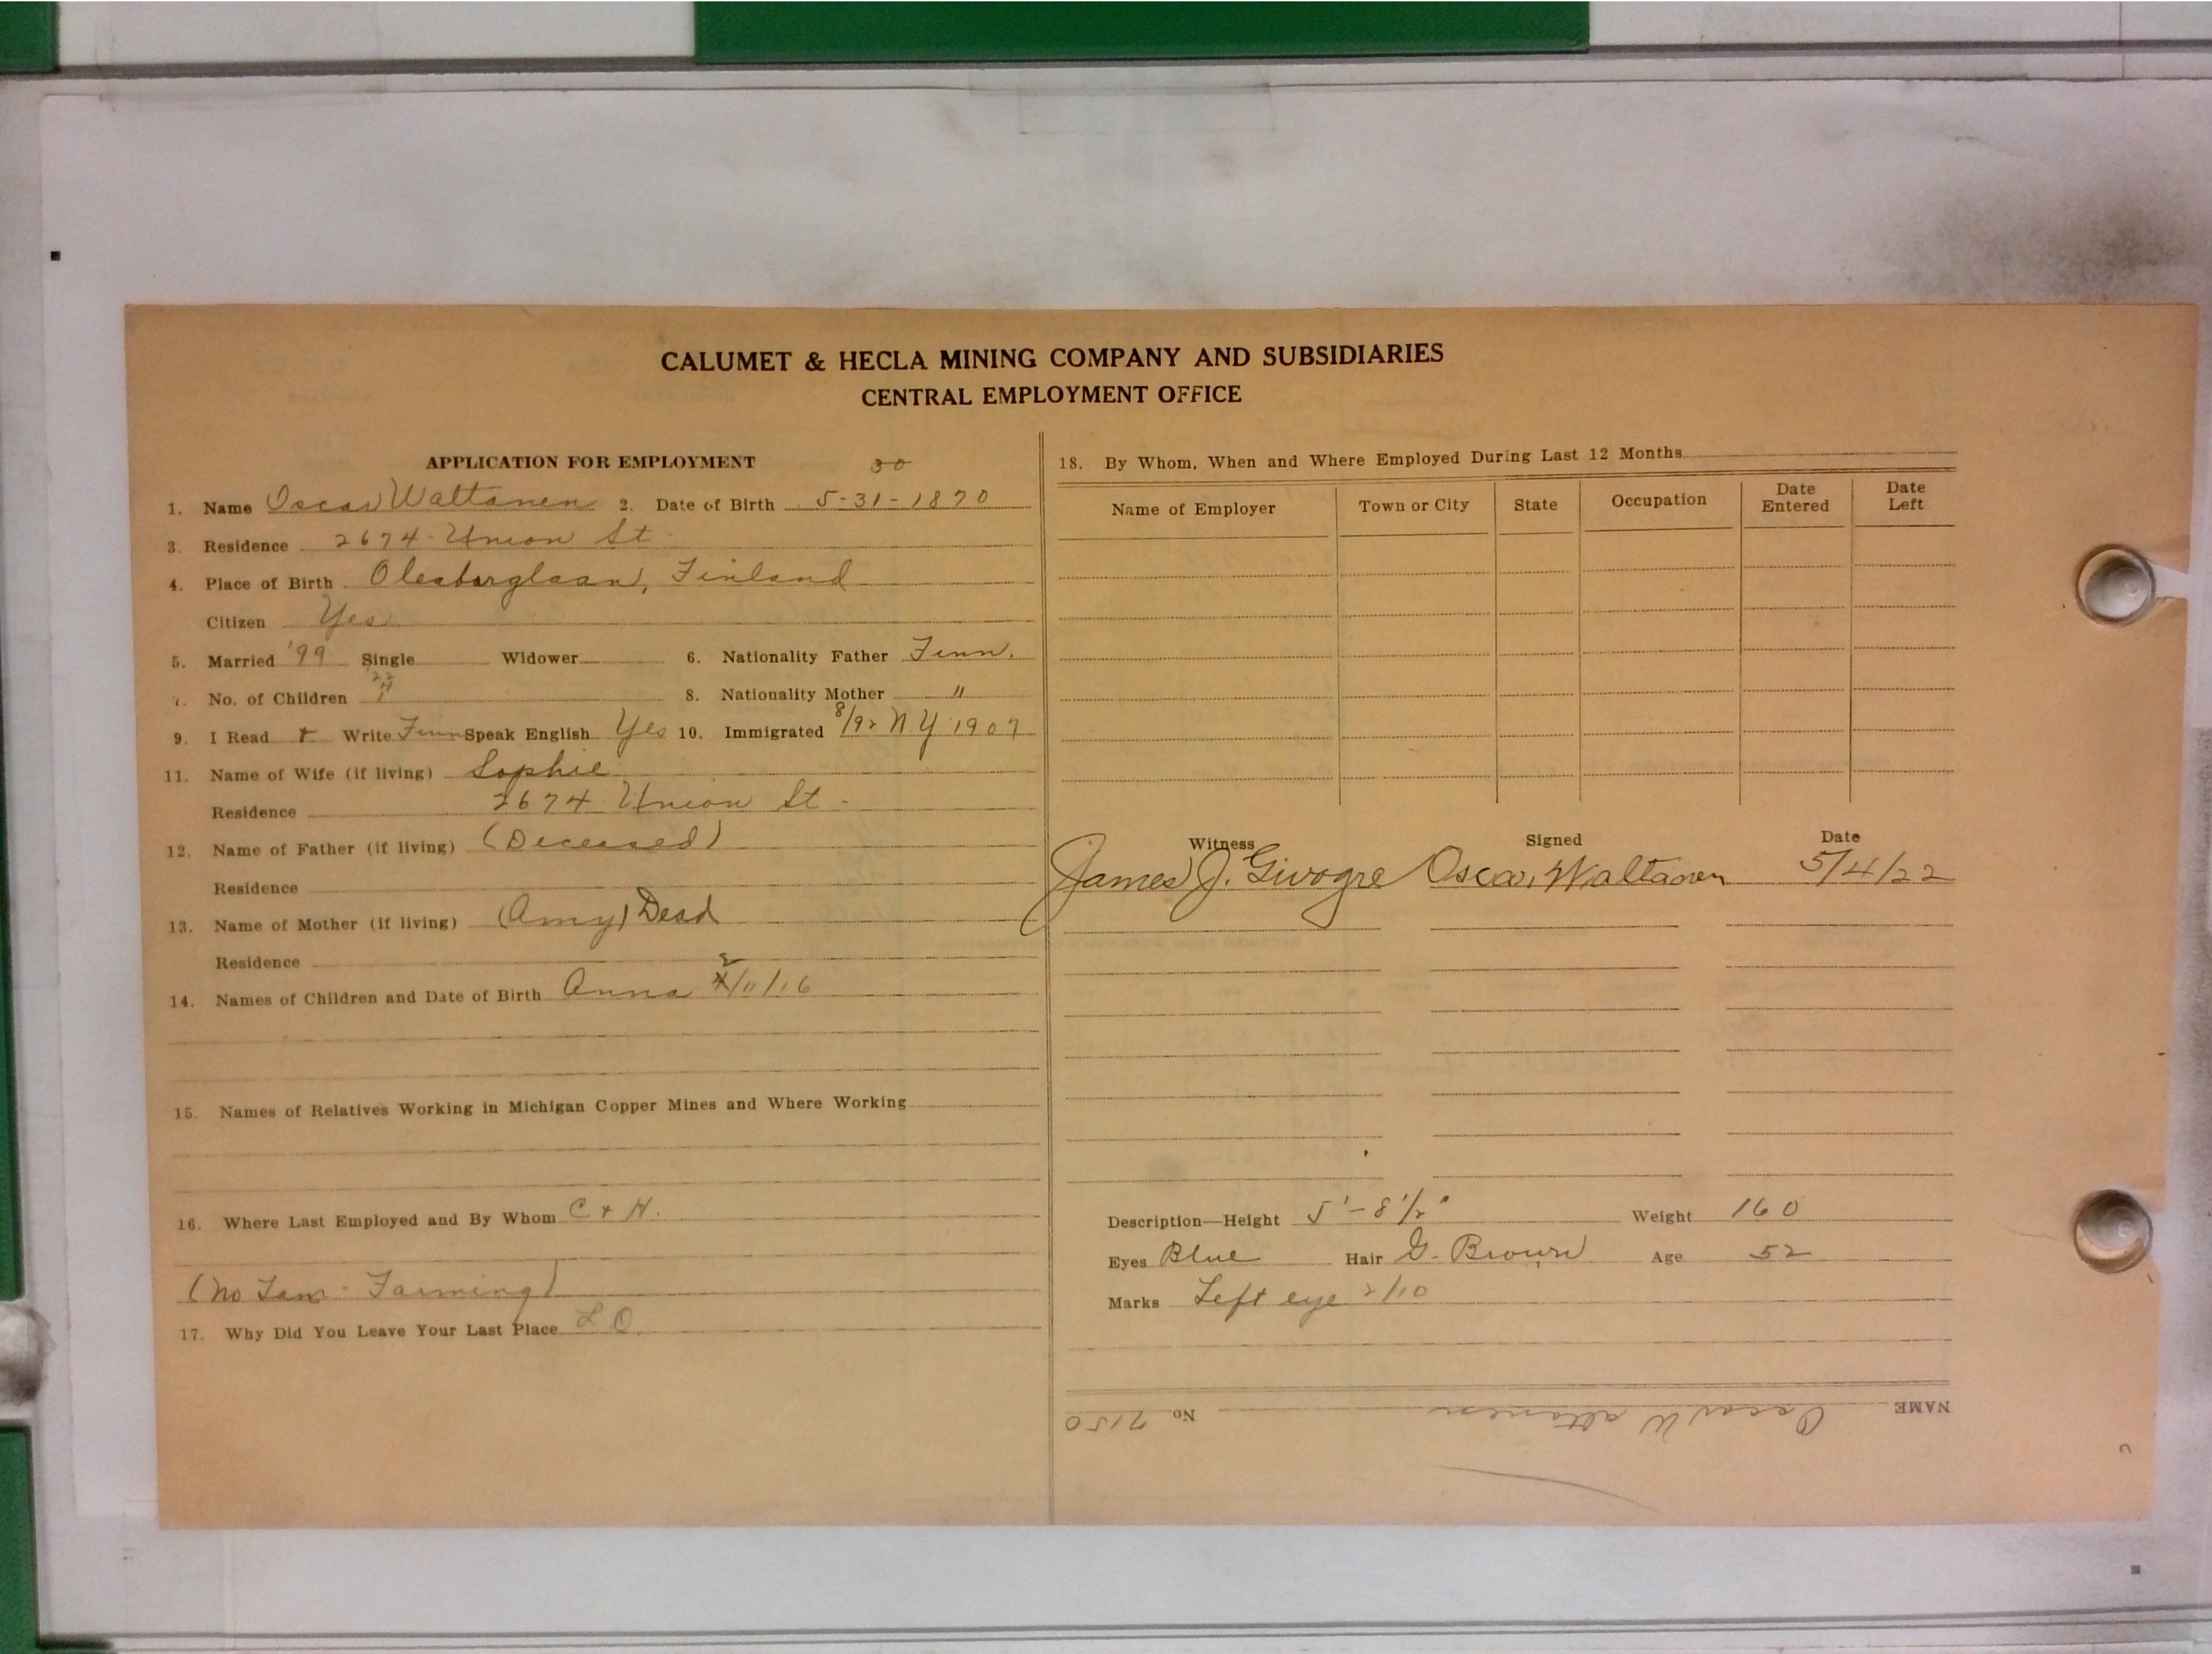 CALUMET & HECLA MINING COMPANY AND SUBSIDIARIES
CENTRAL EMPLOYMENT OFFICE
APPLICATION FOR EMPLOYMENT 30
1. Name Oscar Waltanen 2. Date of Birth 5-31-1870
3. Residence 2674 - Union St.
4. Place of Birth Finland
Citizen Yes
5. Married '99 Single Widower 6. Nationality Father Finn.
7. No. of Children 8. Nationality Mother "
9. I Read + Write Finn Speak English Yes 10. Immigrated 8/92 N Y 1907
11. Name of Wife (if living) Sophie
Residence 2674 Union St -
12. Name of Father (if living) (Deceased)
Residence
13. Name of Mother (if living) (Amy) Dead
Residence
14. Names of Children and Date of Birth Anna 2/11/16
15. Names of Relatives Working in Michigan Copper Mines and Where Working
16. Where Last Employed and By Whom C + H.
(No - Farming)
17. Why Did You Leave Your Last Place L.O.
18. By Whom, When and Where Employed During Last 12 Months
Name of Employer Town or City State Occupation Date Entered Date Left
Witness Signed Date
James J. Givogre Oscar Waltanen 5/4/22
Description—Height 5'-8 1/2" Weight 160
Eyes Blue Hair G. Brown Age 52
Marks Left eye 2/10
NAME Oscar Waltanen No. 7150